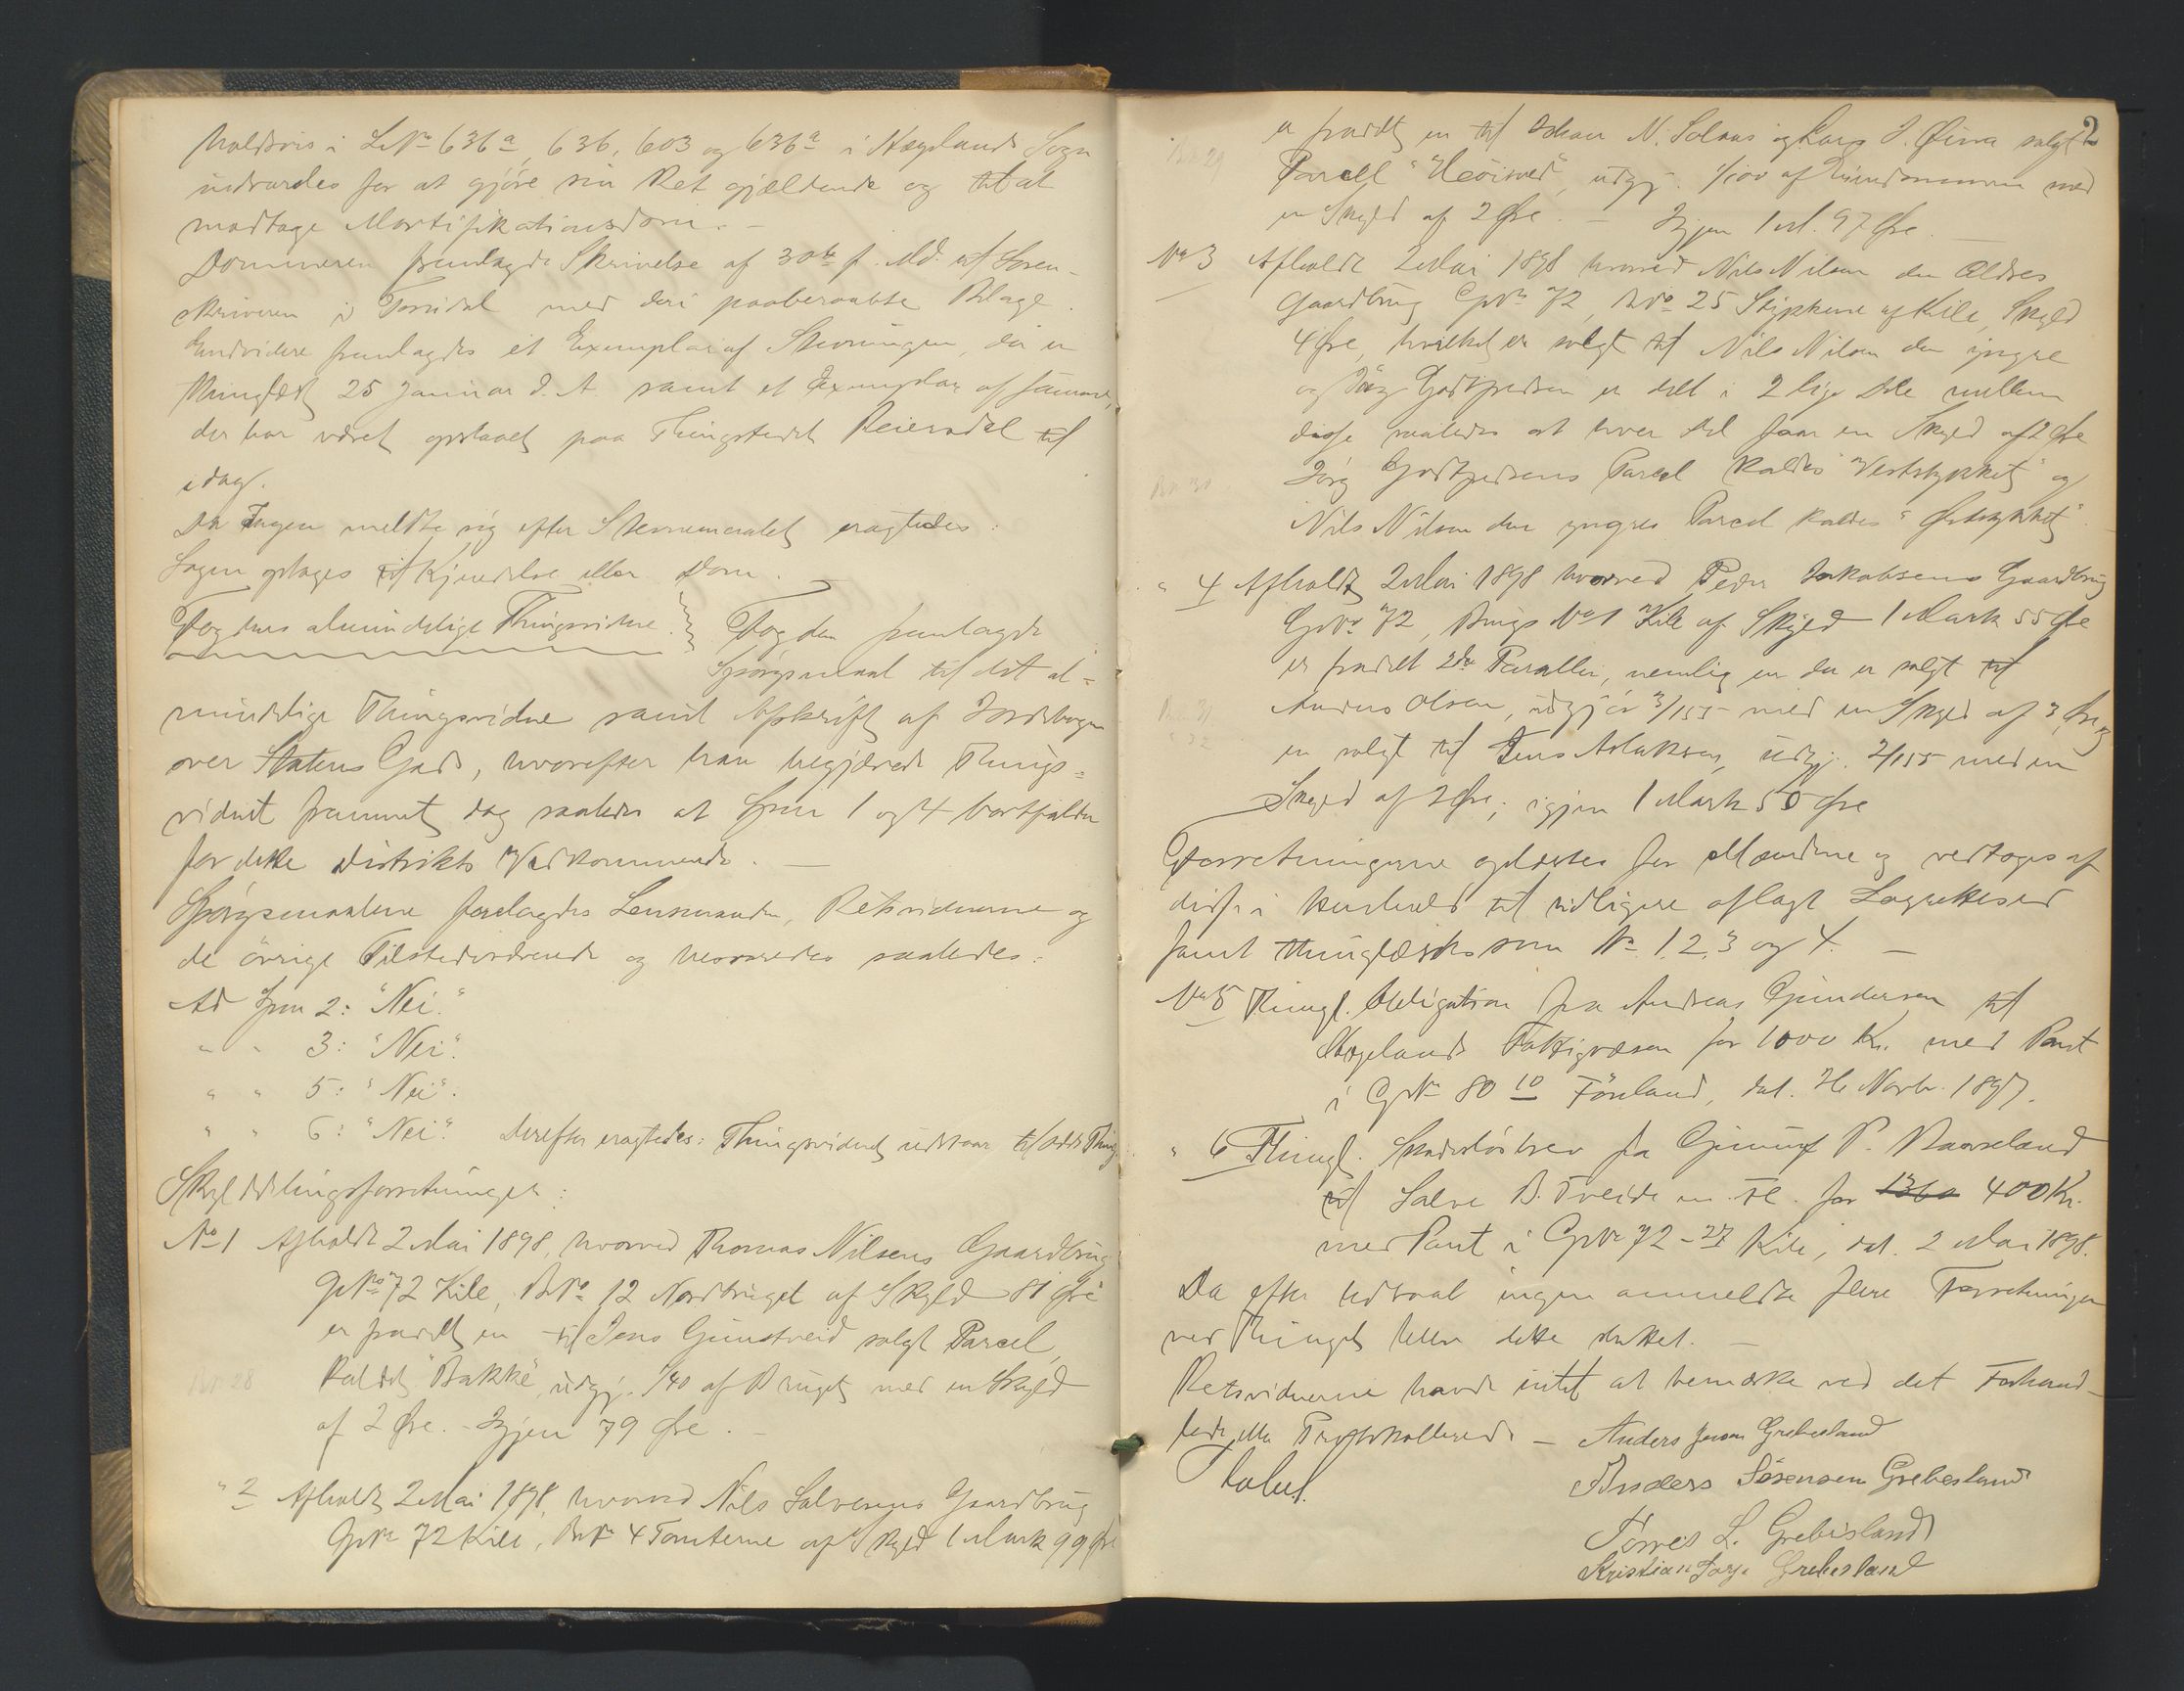 holdsvis i LNº 636a, 636, 603 og 636a i Hægelands Sogn
indvardes for at gjøre sin Ret gjældende og til at
modtage Mortifikationsdom. –
Dommeren fremlagde Skrivelse af 30te f. Md. til Soren-
skriveren i Torridal med deri paaberaabte Bilage.
Endvidere fremlagdes et Exemplar af Stevningen, der er
thinglæst 25 Januar d. A. samt et Exemplar af samme,
der har været opslaaet paa Thingstedet Reiersdal til
idag.
Da Ingen meldte sig efter Stevnemaalet eragtedes:
Sagen optages til Kjendelse eller Dom.
Fogdens almindelige Thingsvidne. Fogden fremlagde
Spørgsmaal til det al-
mindelige Thingsvidne samt Afskrift af Jordebogen
over Statens Gods, hvorefter han begjærede Things-
vidnet fremmet, dog saaledes at Spm 1 og 4 bortfalder
for dette Distrikts Vedkommende. –
Spørgsmaalene forelagdes Lensmanden, Retsvidnerne og
de øvrige Tilstedeværende og besvaredes saaledes:
Ad Spm 2: "Nei."
" " 3: "Nei".
" " 5: "Nei".
" " 6: "Nei". Derefter eragtedes: Thingsvidnet udstaar til Thing
Skylddelingsforretninger:
No 1 Afholdt 2 Mai 1898, hvorved Thomas Nilsens Gaardbrug
GNº 72 Kile, BNº 12 Nordbruget af Skyld 81 Øre
er fraskilt en til Jens Gunstveid solgt Parcel,
Bno 28 kaldet "Bakke", udgj. 1/40 af Bruget med en Skyld
af 2 Øre. – Igjen 79 Øre. –
" 2 Afholdt 2 Mai 1898, hvorved Nils Salvesens Gaardbrug
GNº 72 Kile, BNº 4 Tomterne af Skyld 1 Mark 99 Øre
2
er fraskilt en til Johan N. Solaas og Lars J. solgt
Bno 29 Parcel, udgj. 1/100 af Eiendommen med
en Skyld af 2 Øre. – Igjen 1 M. 97 Øre. –
No 3 Afholdt 2 Mai 1898 hvorved Nils Nilsen den Ældres
Gaardbrug GNº 72, BNº 25 Stykkene af Kile, Skyld
4 Øre, hvilket er solgt til Nils Nilsen den yngre
og Jørg Godtfredsen er delt i 2 lige Dele mellem
disse saaledes at hver Del faar en Skyld af 2 Øre
Bno 30 Jørg Godtfredsens Parcel kaldes "Veststykket" og
Nils Nilsen den yngres Parcel kaldes "Øststykket".
" 4 Afholdt 2 Mai 1898 hvorved Peder Jakobsens Gaardbrug
GNº 72, Brugs No 1 Kile af Skyld 1 Mark 55 Øre
er fraskilt 2de Parceller, nemlig en der er solgt til
Bno 31 Anders Olsen, udgjør 3/155 med en Skyld af 3 Øre, og
" 32 en solgt til Jens Aslaksen, udgj. 2/155 med en
Skyld af 2 Øre; igjen 1 Mark 50 Øre
Forretningerne oplæstes for Mændene og vedtoges af
disse i Henhold til tidligere aflagt Lagretteed
samt thinglæstes som No 1, 2, 3 og 4. –
No 5 Thingl. Obligation fra Andreas Gundersen til
Hægelands Fattigvæsen for 1000 Kr. med Pant
i GNº 80 10 Føreland, dat. 26 Novbr. 1897.
" 6 Thingl. Skadesløsbrev fra Gunuf P. Raarseland
til Salve B. Tveide m. Fl. for 1360 400 Kr.
med Pant i GNº 72 - 27 Kile, dat. 2 Mai 1898.
Da efter Udraab ingen anmeldte flere Forretninger
ved Thinget blev dette sluttet. –
Retsvidnerne havde intet at bemærke ved det Forhand-
lede eller Protokollerede – Anders Jensen Grebesland
Anders Sørensen Grebesland
Tørres L. Grebisland
Kristian Tarje Grebesland